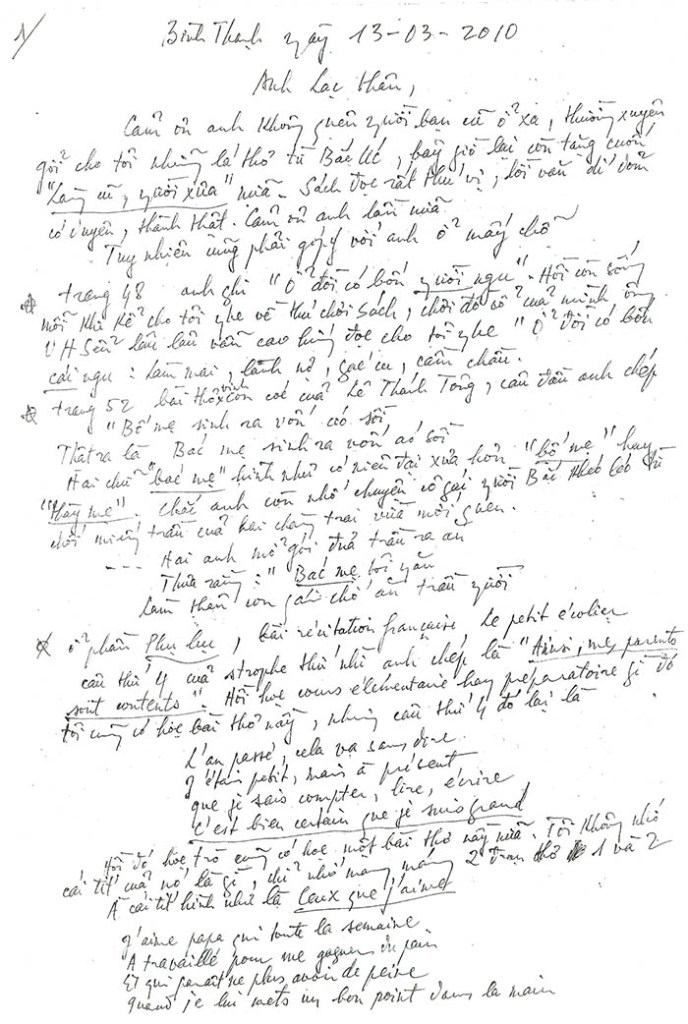 1/
Bình Thạnh ngày 13-03-2010
Anh Lạc Nhân,
Cảm ơn anh không quên người bạn cũ ở xa, thường xuyên
gởi cho tôi những lá thơ từ Bắc Úc, bây giờ lại còn tặng cuốn
"Làng cũ, người xưa" nữa. Sách đọc rất thú vị, lời văn dí dỏm
có duyên, thành thật. Cảm ơn anh lần nữa.
Tuy nhiên cũng phải góp ý với anh ở mấy chỗ
trang 48 anh ghi "Ở đời có bốn người ngu". Hồi còn sống
mỗi khi kể cho tôi nghe về thú chơi sách, chơi đồ cổ của mình ông
VH Sển lâu lâu vẫn cao hứng đọc cho tôi nghe "Ở đời có bốn
cái ngu: làm mai, lãnh nợ, gác cu, cầm chầu.
trang 52 bài thơ vịnh con cóc của Lê Thánh Tông, câu đầu anh chép
"Bố mẹ sinh ra vốn có sồi,
Thật ra là Bác mẹ sinh ra vốn áo sồi
Hai chữ "bác mẹ" hình như có niên đại xưa hơn "bố mẹ" hay
"thầy mẹ". Chắc anh còn nhớ chuyện cô gái người Bắc khéo léo từ
chối miếng trầu của hai chàng trai vừa mới quen.
--- Hai anh mở gói đưa trầu ra ăn
Thưa rằng: "Bác mẹ tôi răn
Làm thân con gái chớ ăn trầu người
ở phần Phụ lục, bài récitation française le petit écolier
câu thứ 4 của strophe thứ nhì anh chép là "Ainsi, mes parents
sont contents". Hồi học cours élémentaire hay préparatoire gì đó
tôi cũng có học bài thơ nầy, nhưng câu thứ 4 đó lại là
L'an passé, cela va sans dire
J'étais petit, mais à présent
que je sais compter, lire, écrire
C'est bien certain que je suis grand
Hồi đó học trò cũng có học một bài thơ nầy nữa. Tôi không nhớ
cái tít của nó là gì, chỉ nhớ mang máng 2 đoạn thơ 1 và 2
À cái tít hình như là Ceux que j'aime
J'aime papa qui toute la semaine
A travaillé pour me gagner du pain
Et qui paraît ne plus avoir de peine
quand je lui mets un bon point dans la main